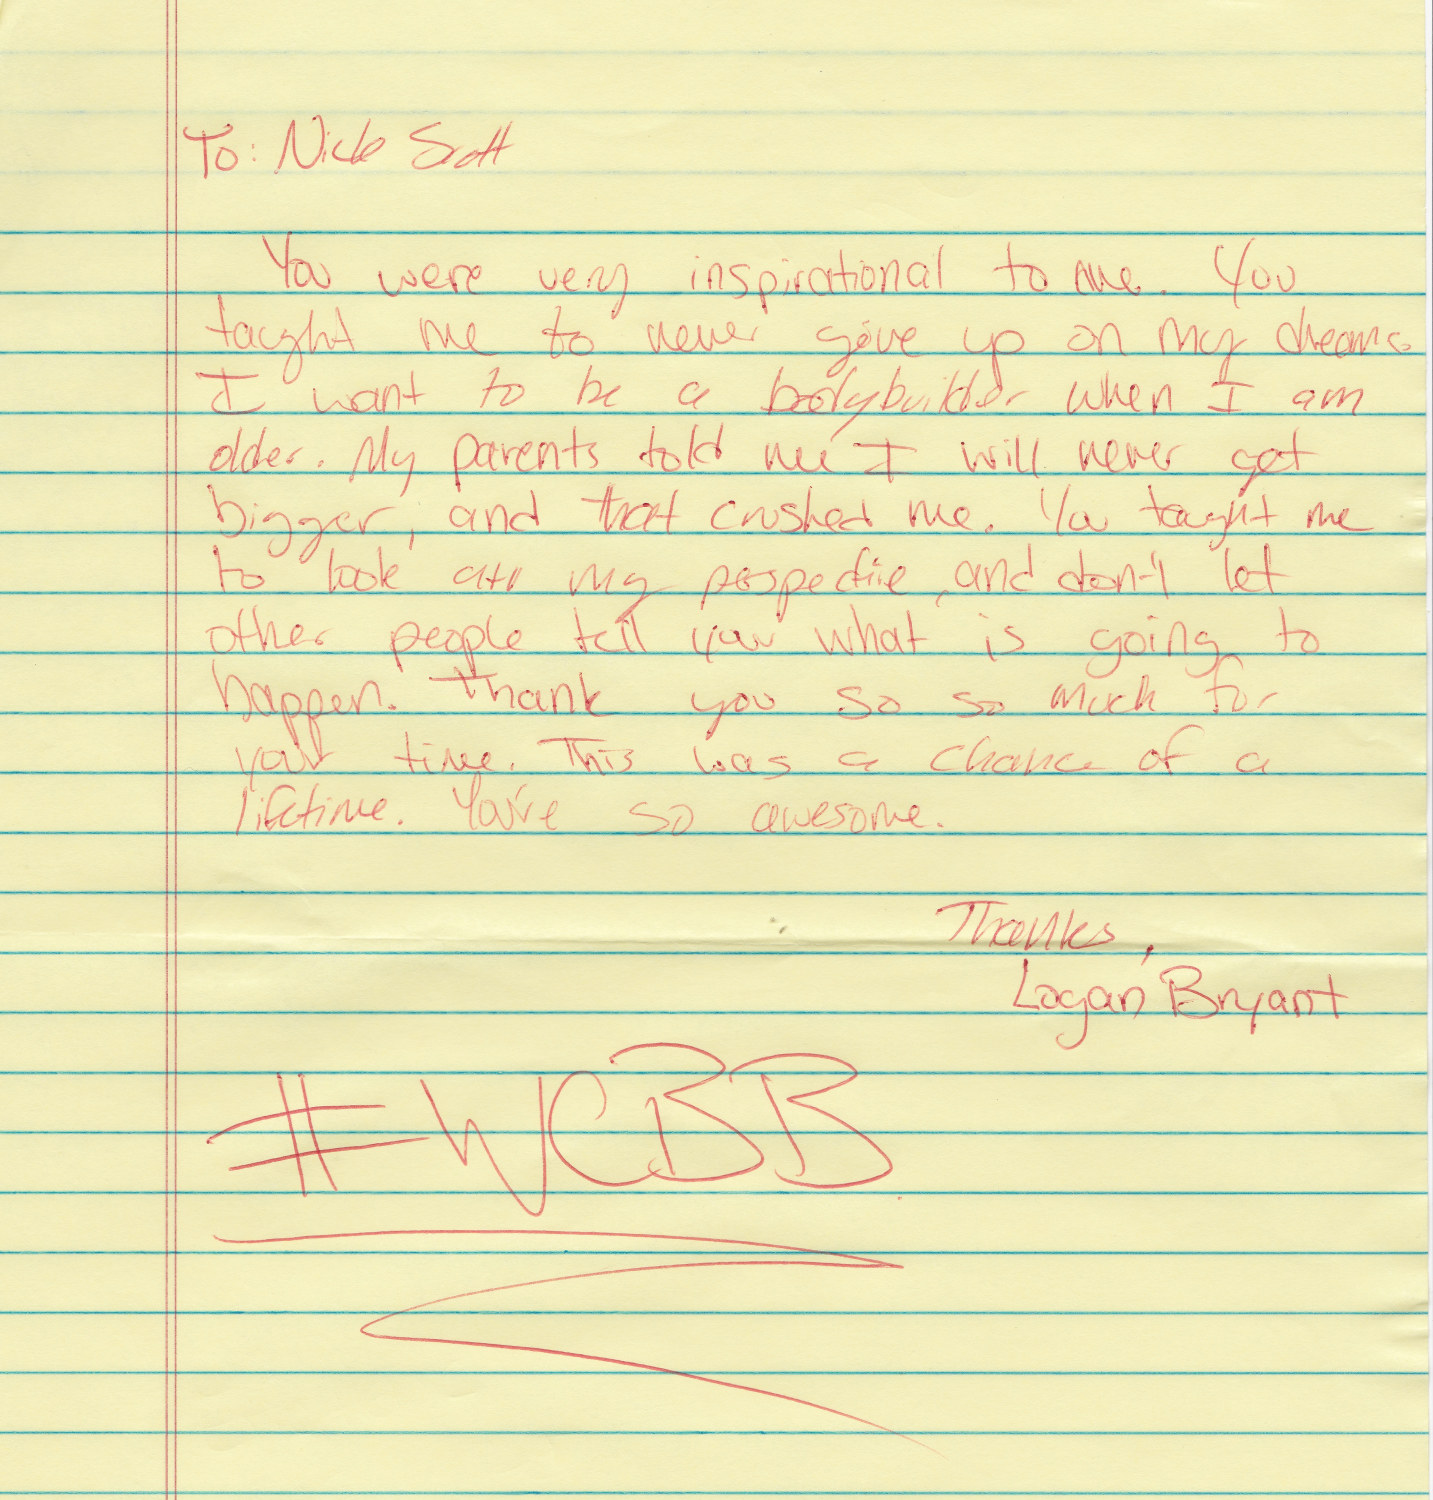 To: Nick Scott
You were very inspirational to me. You
taught me to never give up on my dreams
I want to be a bodybuilder when I am
older. My parents told me I will never get
bigger, and that crushed me. You taught me
to look at my perspective, and don't let
other people tell you what is going to
happen. Thank you so so much for
your time. This was a chance of a
lifetime. You're so awesome.
Thanks,
Logan Bryant
#WCBB